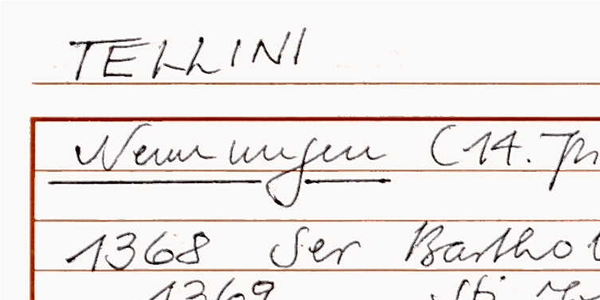 TELLINI
Nennungen (14. Jh
1368 Ser Barthol
1369